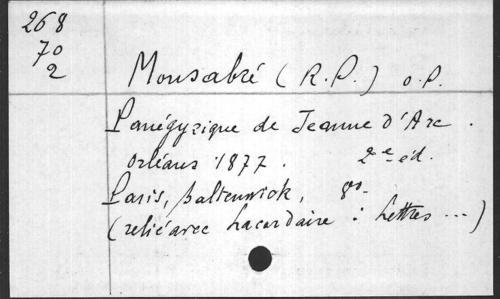 268
70
2
Monsabré (R.P.) O.P.
Panégyrique de Jeanne d'Arc.
Orléans 1877. 2e éd.
Paris, Baltenwick, 8o-
(relié avec Lacordaire : Lettres ...)